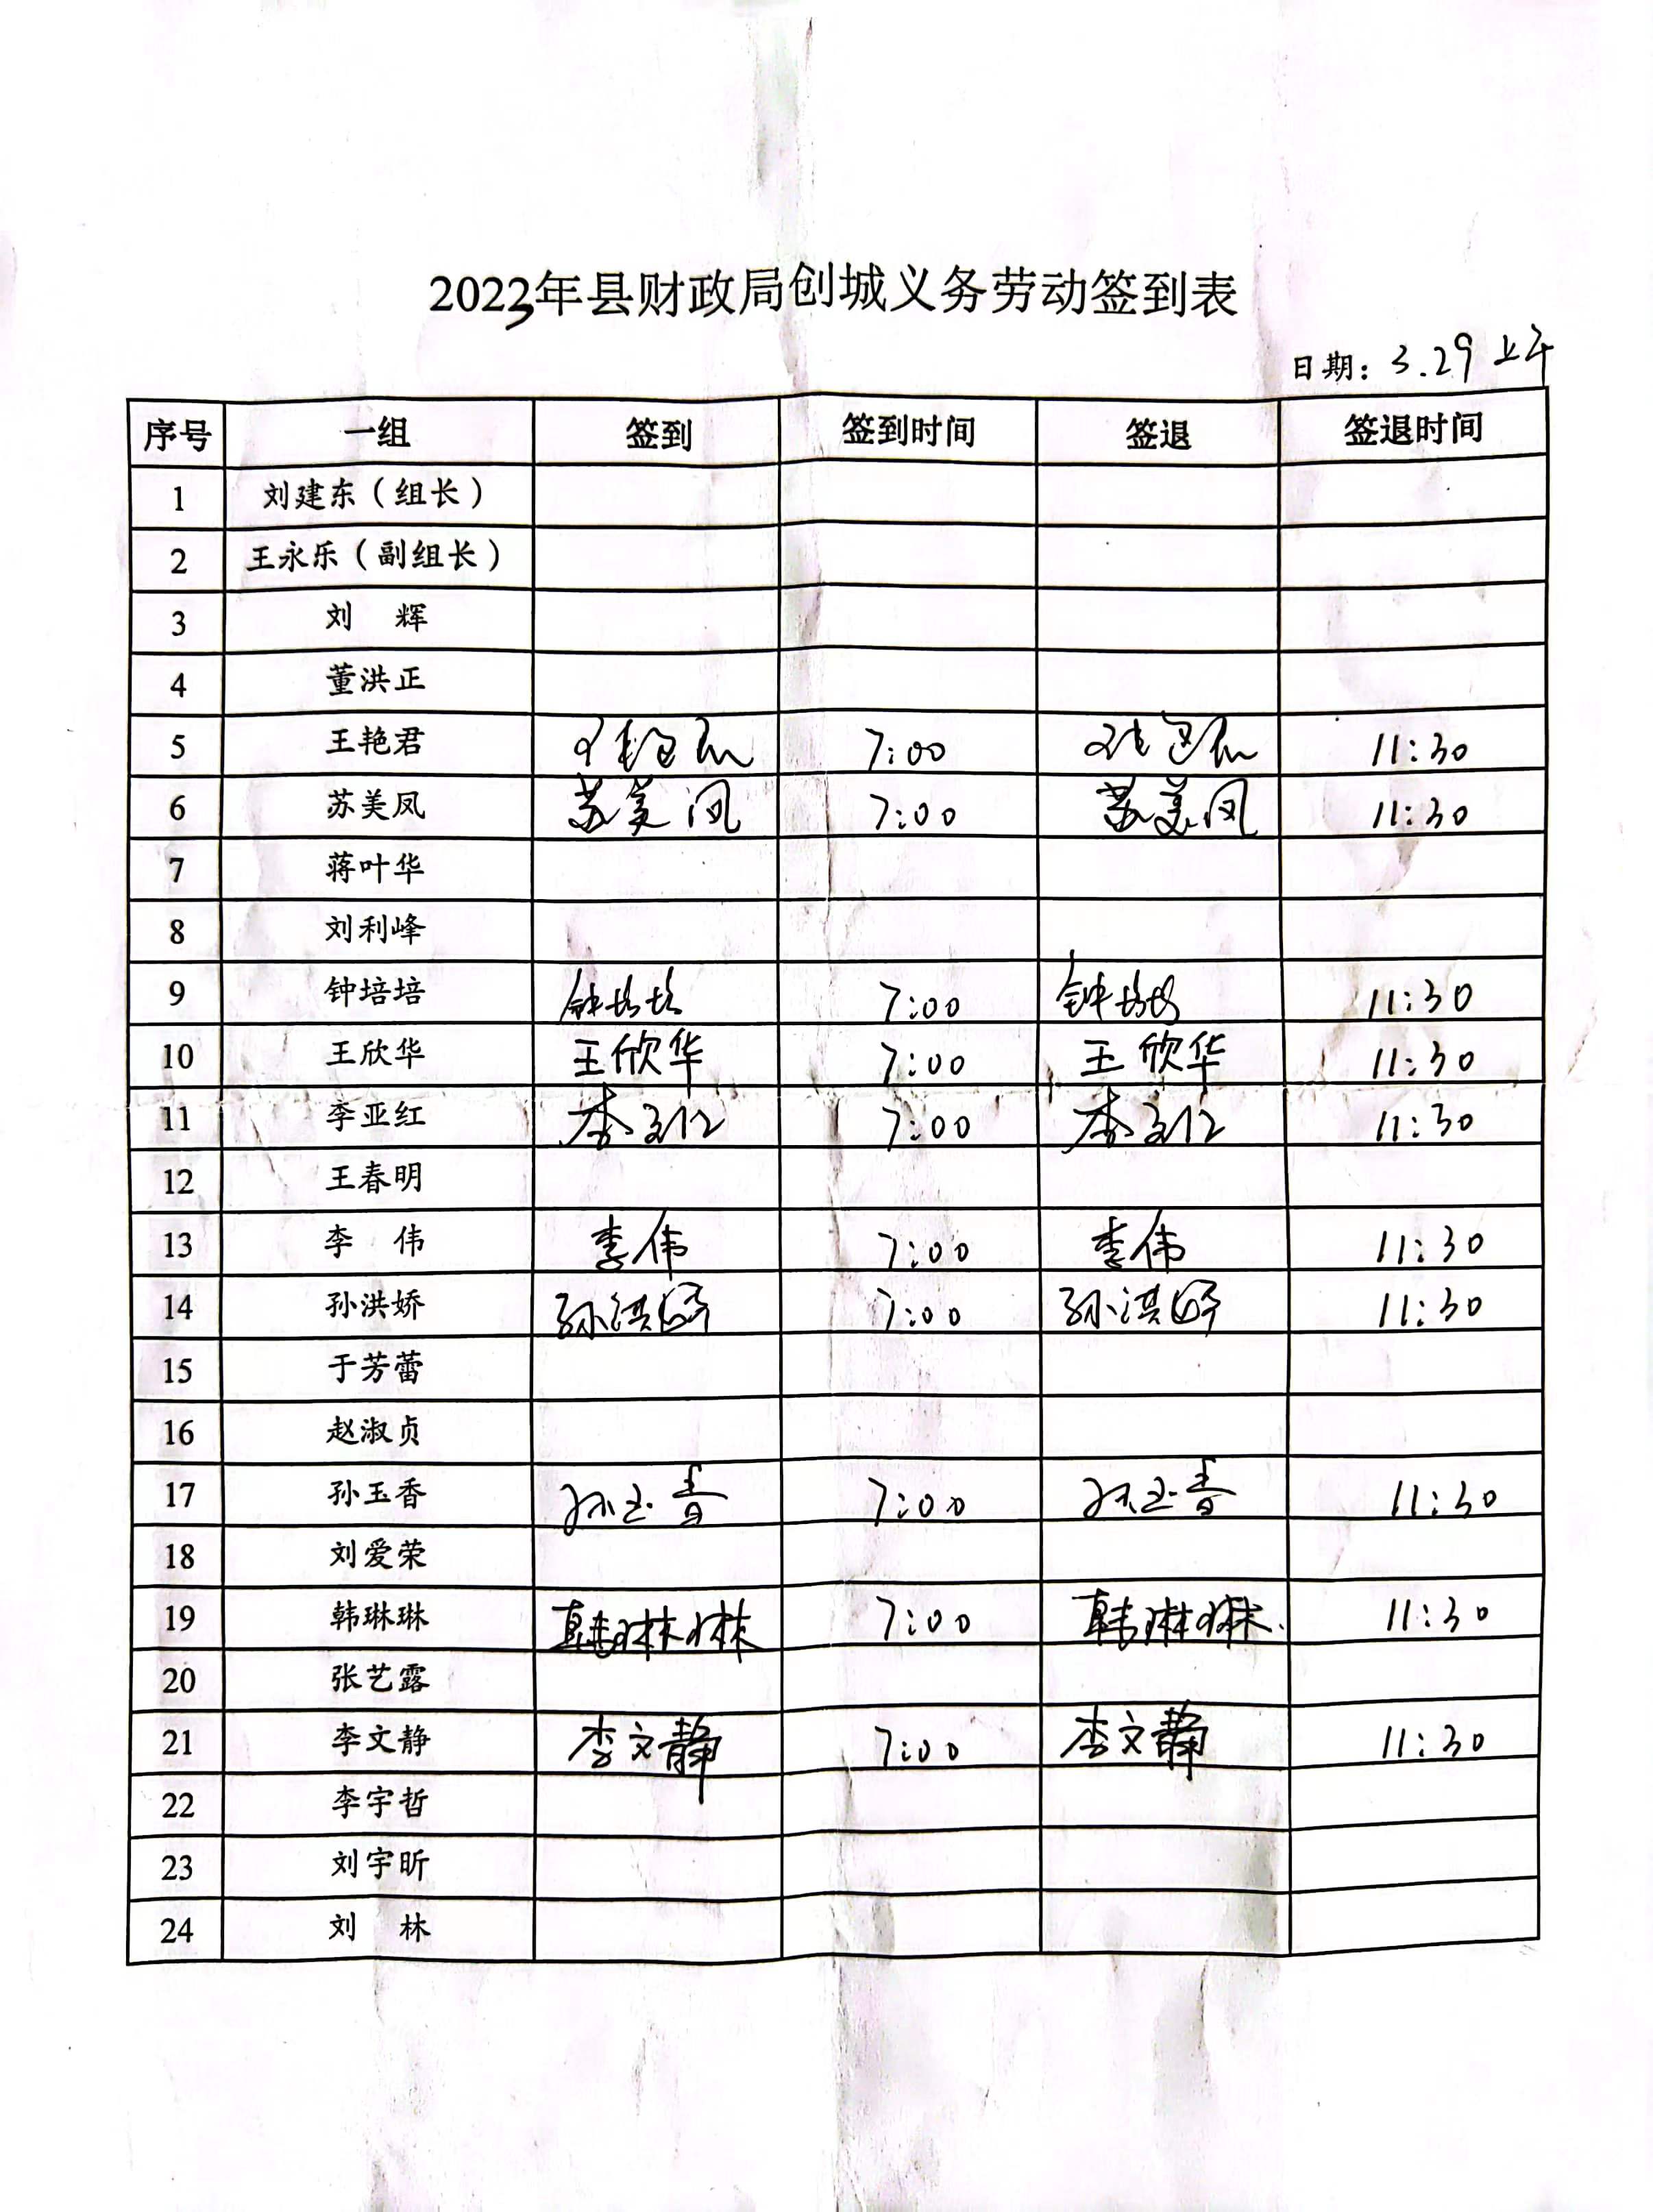 2023年县财政局创城义务劳动签到表
日期：3.29 上午
序号 一组 签到 签到时间 签退 签退时间
1 刘建东（组长）
2 王永乐（副组长）
3 刘 辉
4 董洪正
5 王艳君 王艳君 7:00 王艳君 11:30
6 苏美凤 苏美凤 7:00 苏美凤 11:30
7 蒋叶华
8 刘利峰
9 钟培培 钟培培 7:00 钟培培 11:30
10 王欣华 王欣华 7:00 王欣华 11:30
11 李亚红 李亚红 7:00 李亚红 11:30
12 王春明
13 李 伟 李伟 7:00 李伟 11:30
14 孙洪娇 孙洪娇 7:00 孙洪娇 11:30
15 于芳蕾
16 赵淑贞
17 孙玉香 孙玉香 7:00 孙玉香 11:30
18 刘爱荣
19 韩琳琳 韩琳琳 7:00 韩琳琳 11:30
20 张艺露
21 李文静 李文静 7:00 李文静 11:30
22 李宇哲
23 刘宇昕
24 刘 林